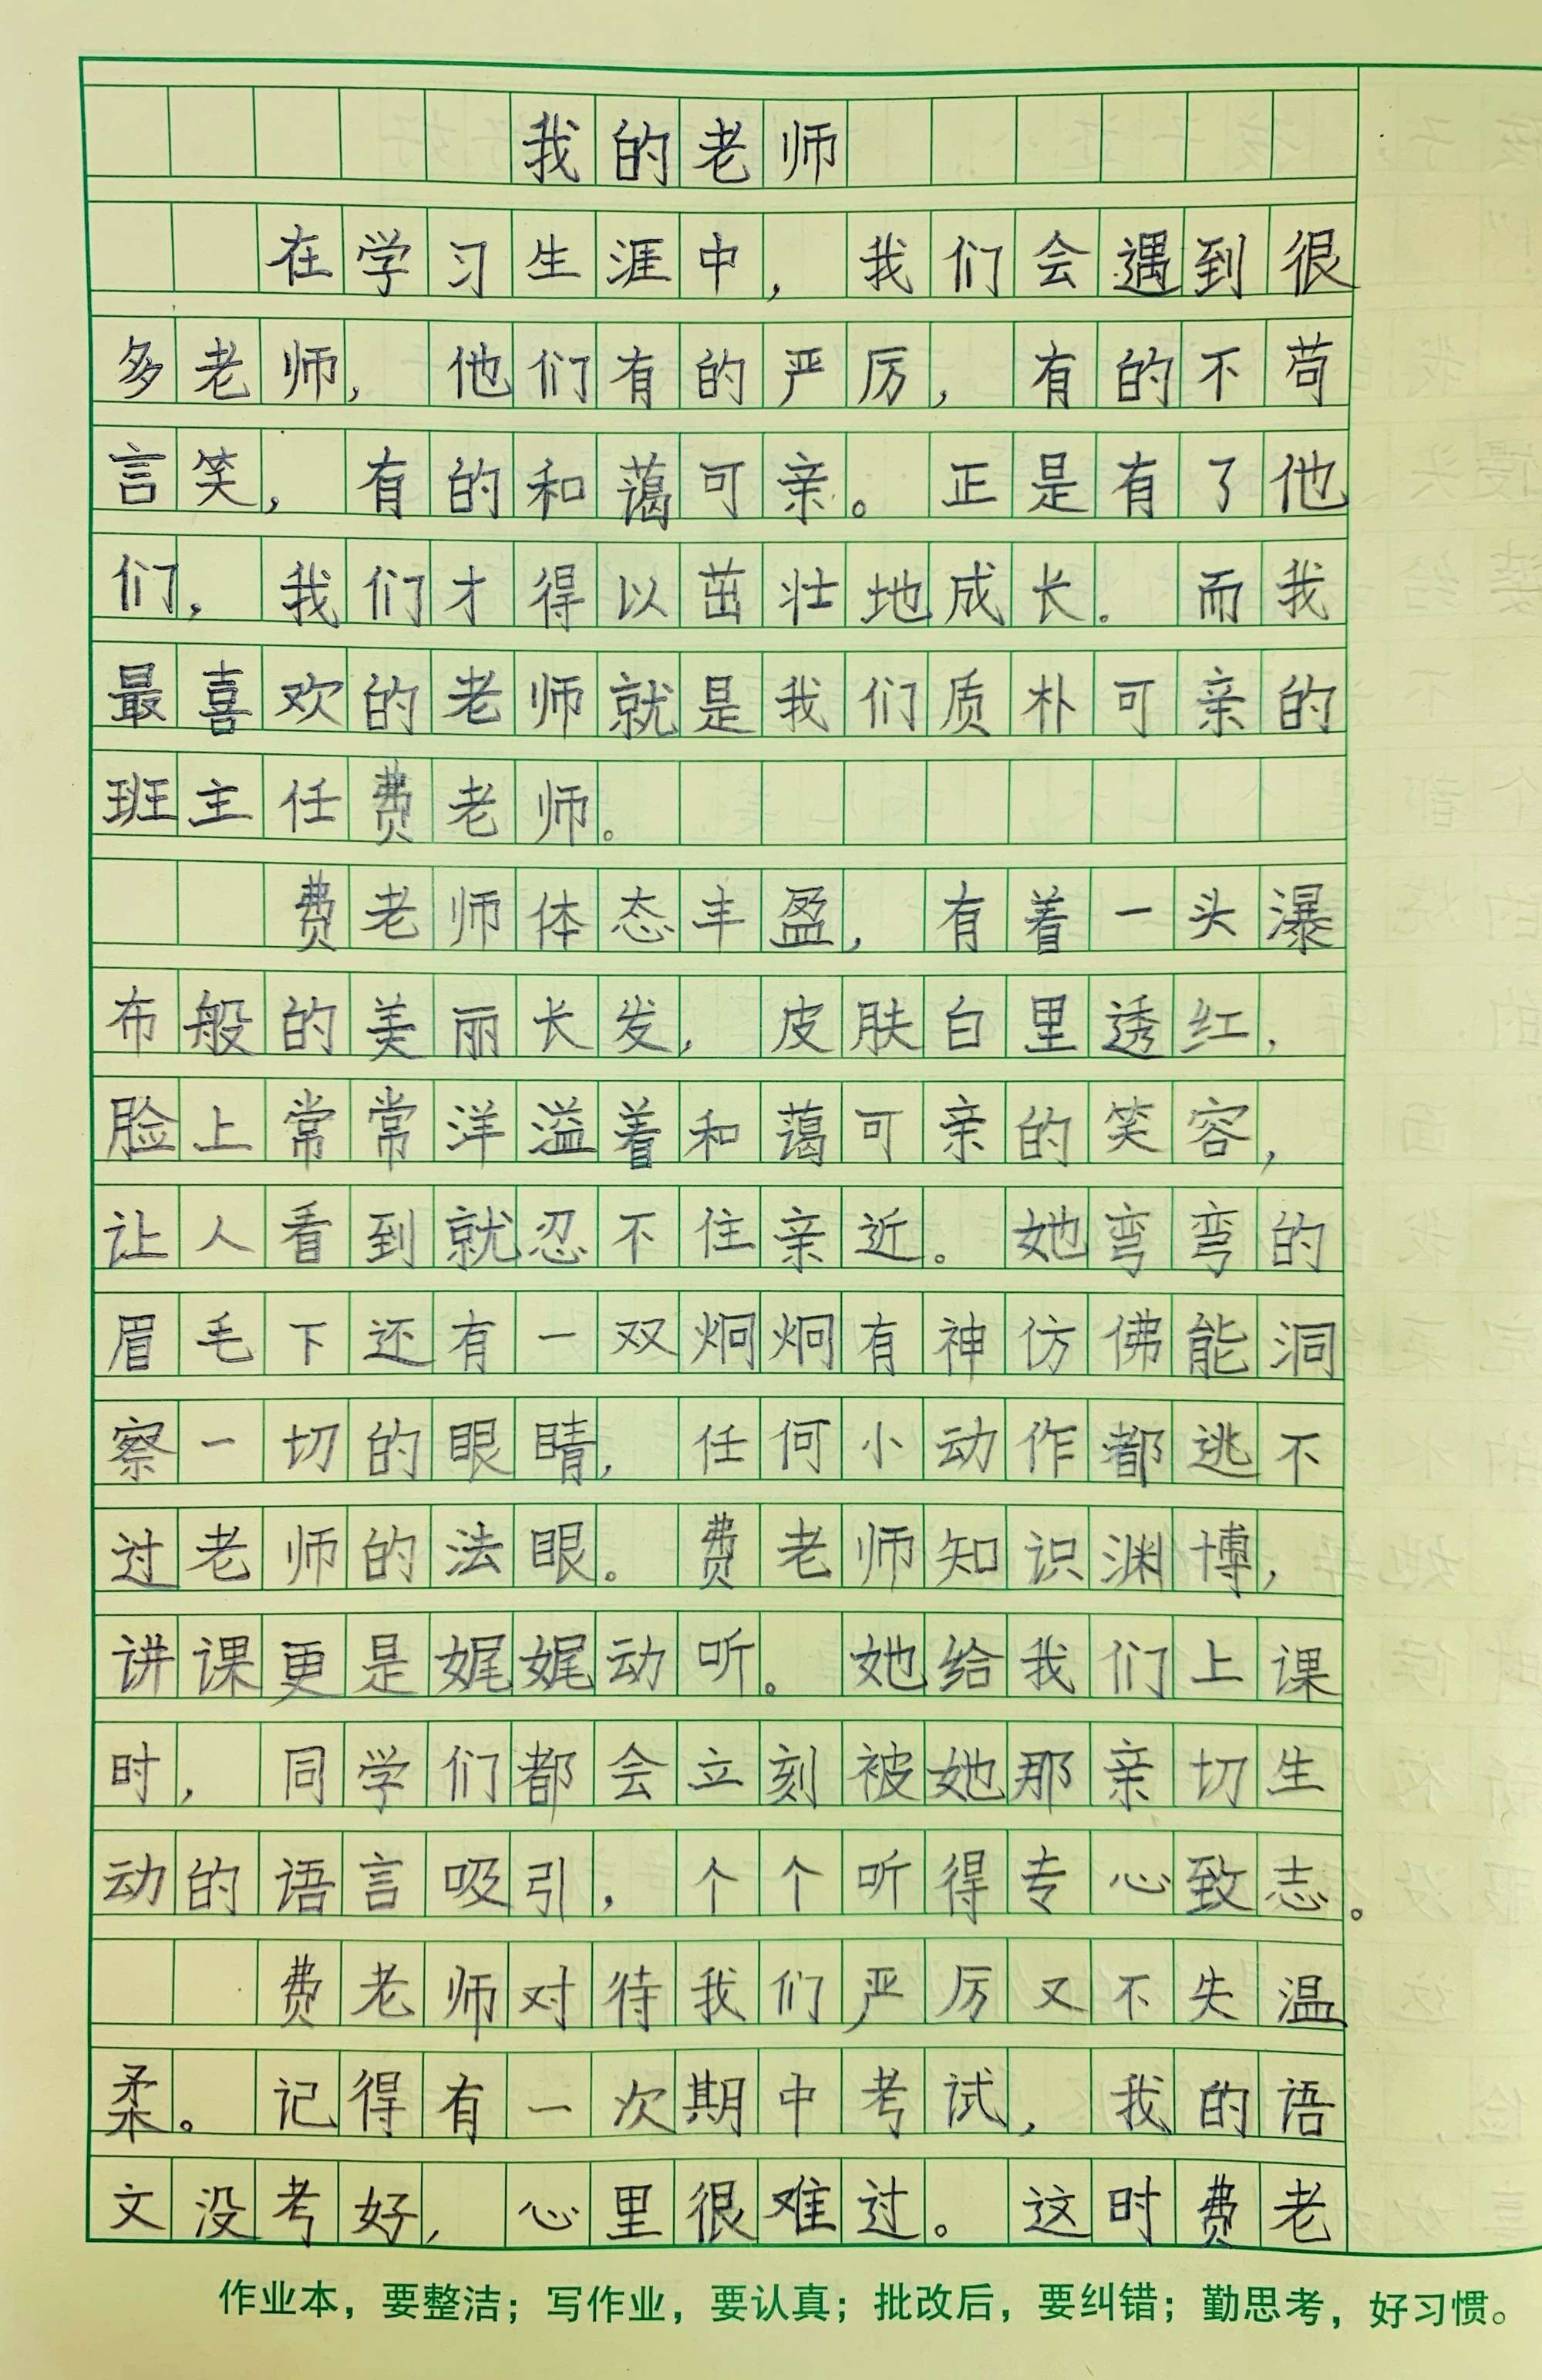 我的老师
在学习生涯中，我们会遇到很
多老师，他们有的严厉，有的不苟
言笑，有的和蔼可亲。正是有了他
们，我们才得以茁壮地成长。而我
最喜欢的老师就是我们质朴可亲的
班主任费老师。
费老师体态丰盈，有着一头瀑
布般的美丽长发，皮肤白里透红，
脸上常常洋溢着和蔼可亲的笑容，
让人看到就忍不住亲近。她弯弯的
眉毛下还有一双炯炯有神仿佛能洞
察一切的眼睛，任何小动作都逃不
过老师的法眼。费老师知识渊博，
讲课更是娓娓动听。她给我们上课
时，同学们都会立刻被她那亲切生
动的语言吸引，个个听得专心致志。
费老师对待我们严厉又不失温
柔。记得有一次期中考试，我的语
文没考好，心里很难过。这时费老
作业本，要整洁；写作业，要认真；批改后，要纠错；勤思考，好习惯。